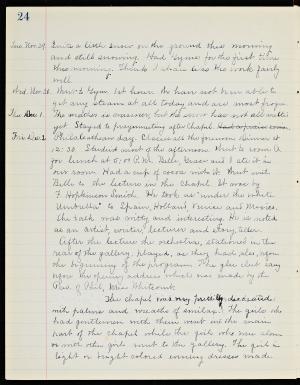 24
Tue. Nov. 29. Quite a little snow on the ground this morning
and still snowing. Had Gym for the first time
this morning. Think I shall like the work fairly
well.
Wed. Nov. 30. Went to Gym 1st hour. We have not been able to
get any steam at all today and are most froze.
Thu. Dec. 1. The weather is warmer, but the snow has not all melted
yet. Stayed to pregymnastics after Chapel.
Fri. Dec. 2 Philalethean day. Closed all the gymnasium dinner at
12:30. Studied most of the afternoon. Went to room A
for lunch at 5:01 P.M. Belle, Grace and I ate it in
our room. Had a cup of cocoa with it. Went with
Belle to the lecture in the Chapel. It was by
F. Hopkinson Smith. He took us "under the white
Umbrella" to Spain, Holland, Venice and Mexico.
The talk was witty and interesting. He is noted
as an artist, writer, lecturer and story teller.
After the lecture the orchestra, stationed in the
rear of the gallery, played, as they had, also, upon
the beginning of the program. The glee club sang
upon the opening address which was made by the
Pres. of Phil, Miss
The chapel was very prettily decorated
with palms and wreaths of smilax. The girls who
had gentlemen with them went in the main
part of the chapel while the girls who were alone
or with other girls went to the gallery. The girls in
light or bright colored evening dresses made